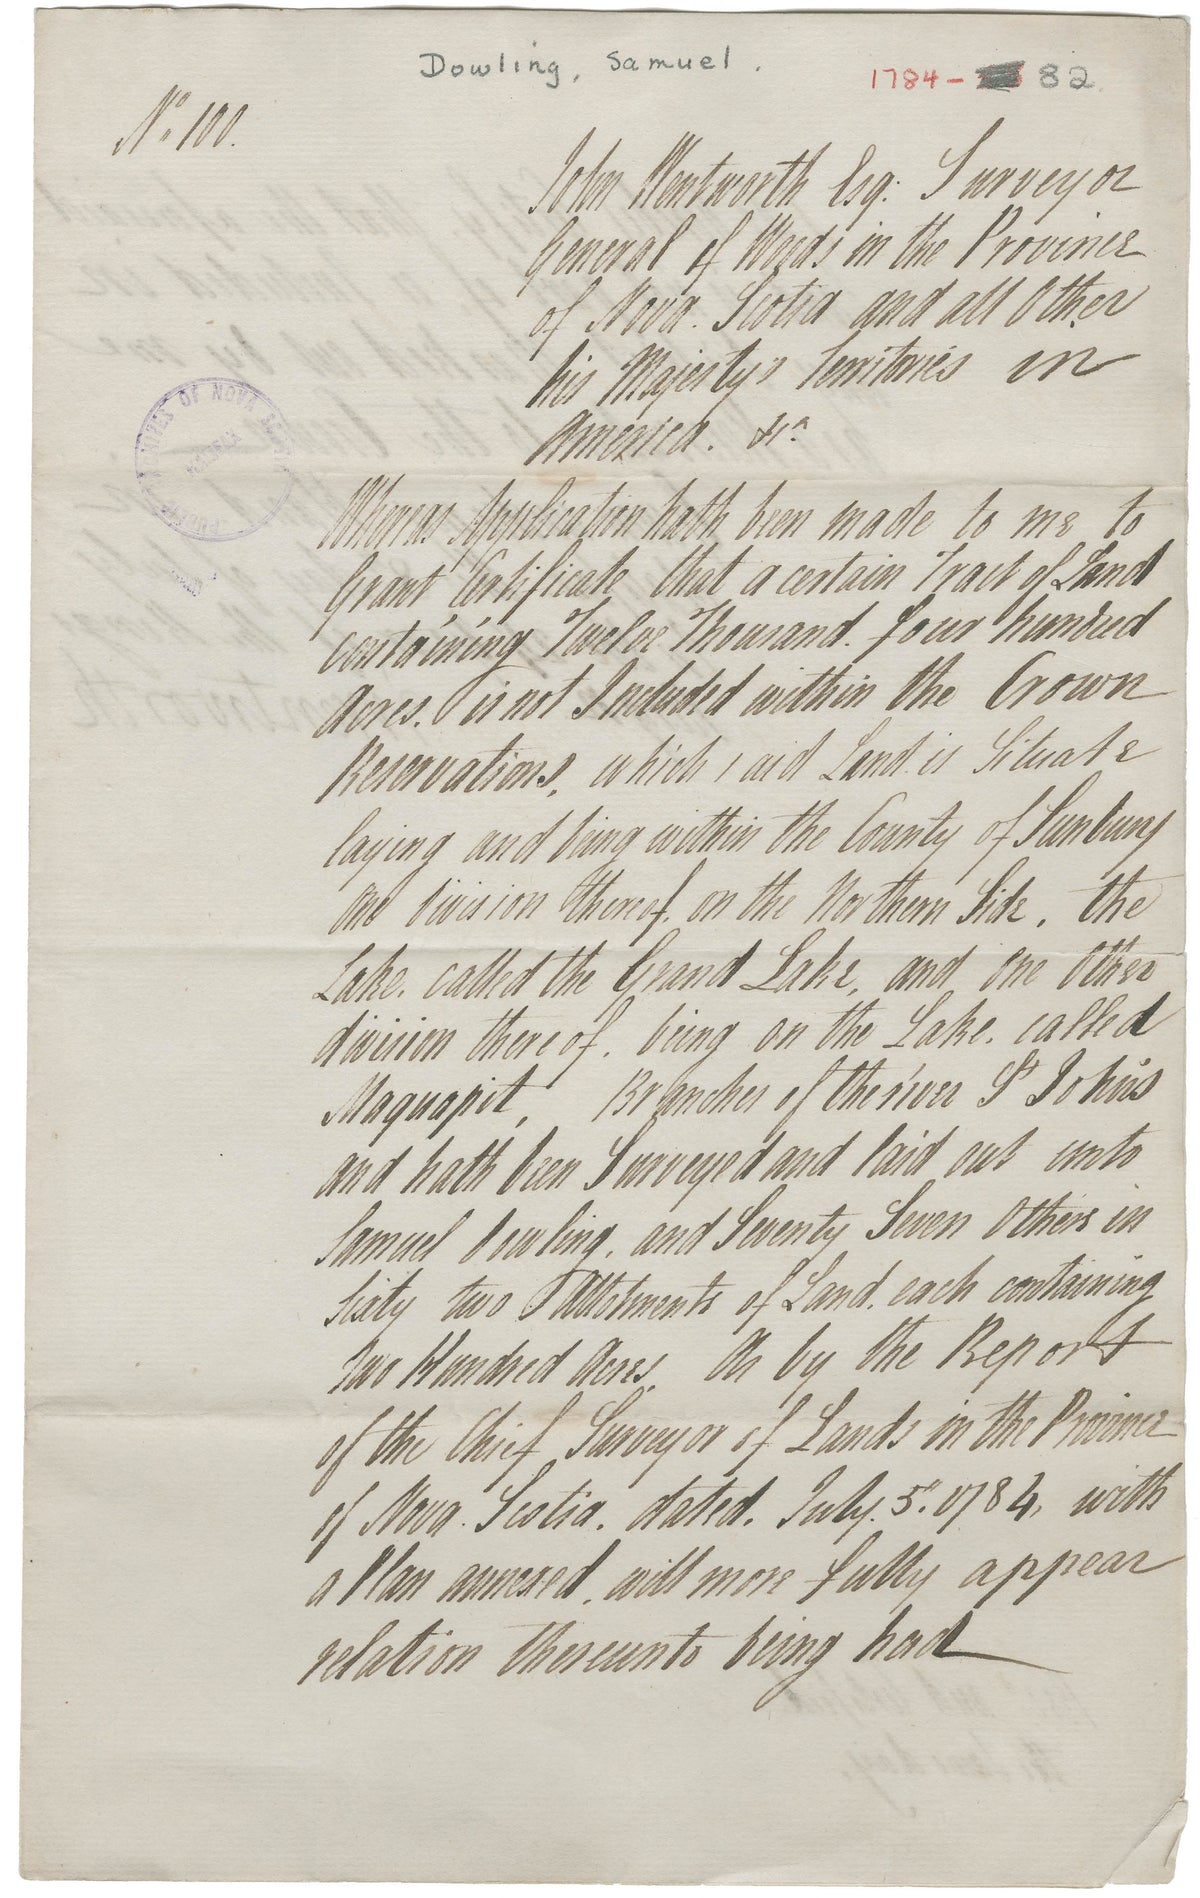 Dowling, Samuel.
1784- 82
No. 100.
John Wentworth Esq: Surveyor
General of Woods in the Province
of Nova. Scotia and all Other
his Majesty's Territories in
America. &ca
Whereas Application hath been made to me to
Grant Certificate that a certain Tract of Land
containing Twelve Thousand. four hundred
Acres. is not Included within the Crown
Reservations, which said Land is Situate
laying and being within the County of Sunbury
one division thereof. on the Northern Side, the
Lake. called the Grand Lake, and one Other
division thereof. being on the Lake. called
Maquapit, Branches of the river St John's
and hath been Surveyed and laid out unto
Samuel Dowling, and Seventy Seven Others in
Sixty two Allotments of Land. each containing
two Hundred Acres. As by the Report
of the Chief Surveyor of Lands in the Province
of Nova. Scotia. dated. July. 5th. 1784, with
a Plan annexed, will more fully appear
relation thereunto being had
PUBLIC ARCHIVES OF NOVA SCOTIA